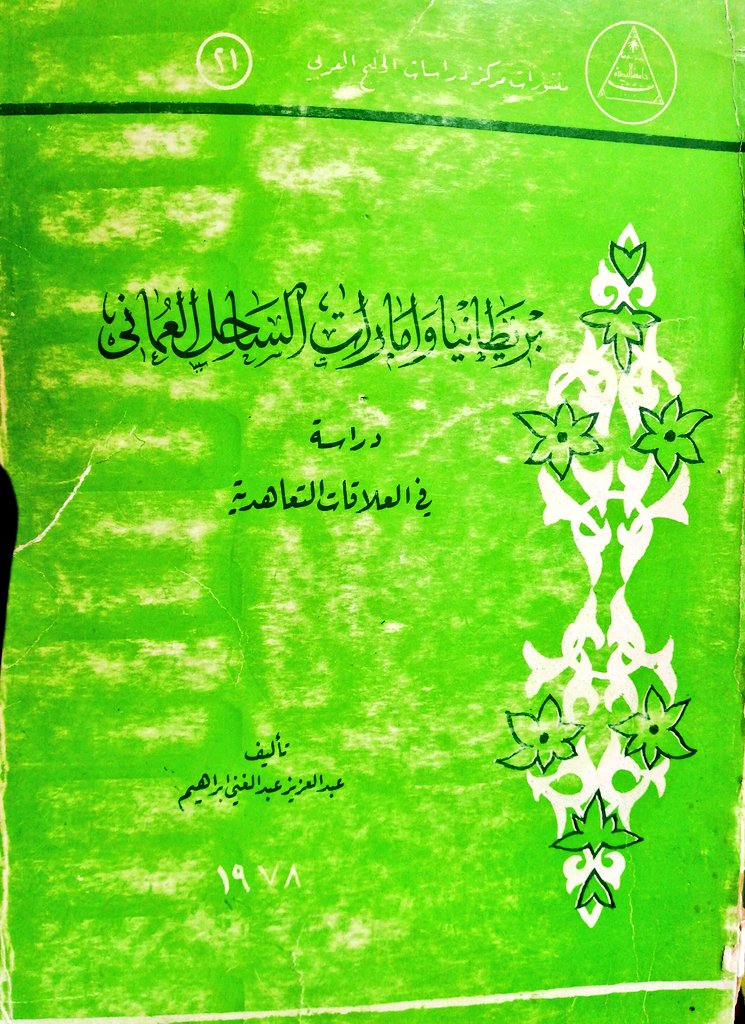 منشورات مركز دراسات الخليج العربي
٢١
بريطانيا وامارات الساحل العمانى
دراسة
في العلاقات التعاهدية
تأليف
عبد العزيز عبد الغني ابراهيم
١٩٧٨